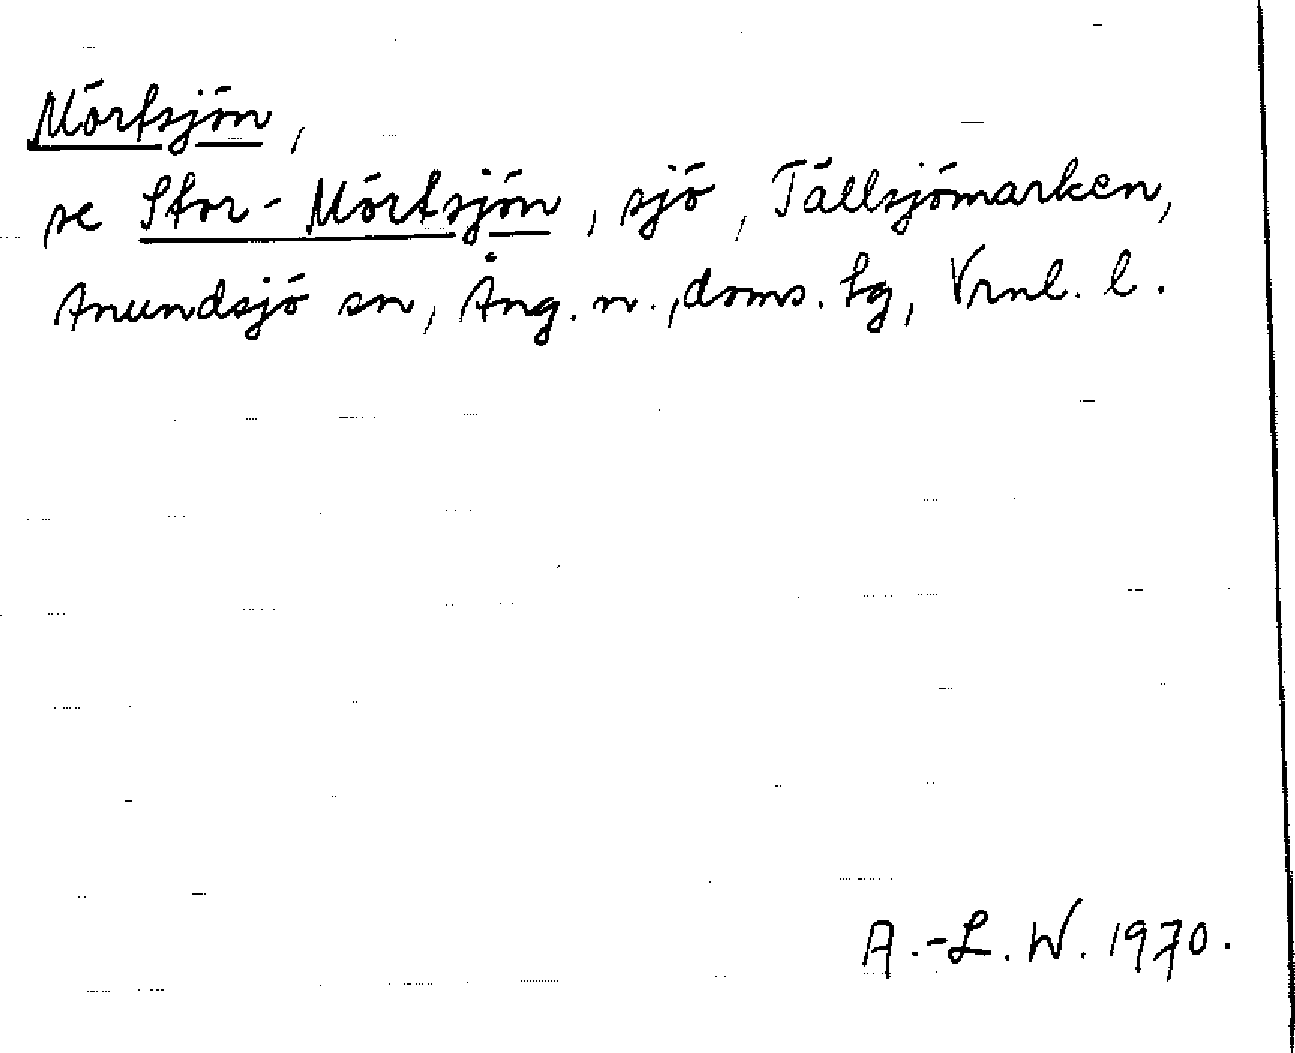 Mörtsjön,
se Stor-Mörtsjön, sjö, Tällsjömarken,
Anundsjö sn, Ång. n., doms. lg, Vrnl. l.
A.-L. W. 1970.